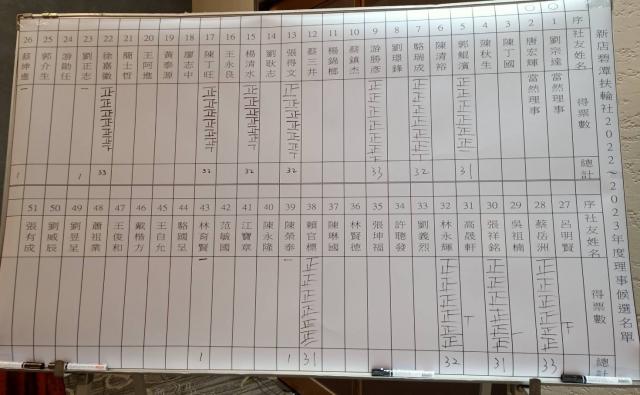 新店碧潭扶輪社2022~2023年度理事候選名單
序 社友姓名 得票數 總計
1 劉宗達 當然理事
2 唐宏輝 當然理事
3 陳丁國
4 陳秋生
5 郭鯤濱 正正正正正正一 31
6 陳清裕
7 駱瑞成 正正正正正正丅 32
8 劉環鋒
9 游勝彥 正正正正正正下 33
10 蔡鎮杰
11 楊錦郎
12 蔡三井
13 張得文 正正正正正正丅 32
14 劉耿志
15 楊清水 正正正正正正丅 32
16 王永良
17 陳丁旺 正正正正正正丅 32
18 廖志中
19 黃泰源
20 王阿進
21 簡士哲
22 徐嘉徽 正正正正正正下 33
23 劉正志 一 1
24 游勛任
25 郭介生
26 蔡坤進 一 1
序 社友姓名 得票數 總計
27 呂明賢
28 蔡岳洲 正正正正正正下 33
29 吳祖楠
30 張祥銘 正正正正正正一 31
31 高晟軒
32 林永輝 正正正正正正丅 32
33 劉義烈
34 許聰發
35 張坤福
36 林賢德
37 陳琳國
38 賴官標 正正正正正正一 31
39 陳榮泰 一 1
40 陳永隆
41 江寶章
42 范敏國
43 林育賢 一 1
44 駱國呈
45 王自允
46 戴楷方
47 王俊和
48 蕭祖業
49 劉昱呈
50 劉威辰
51 張有成